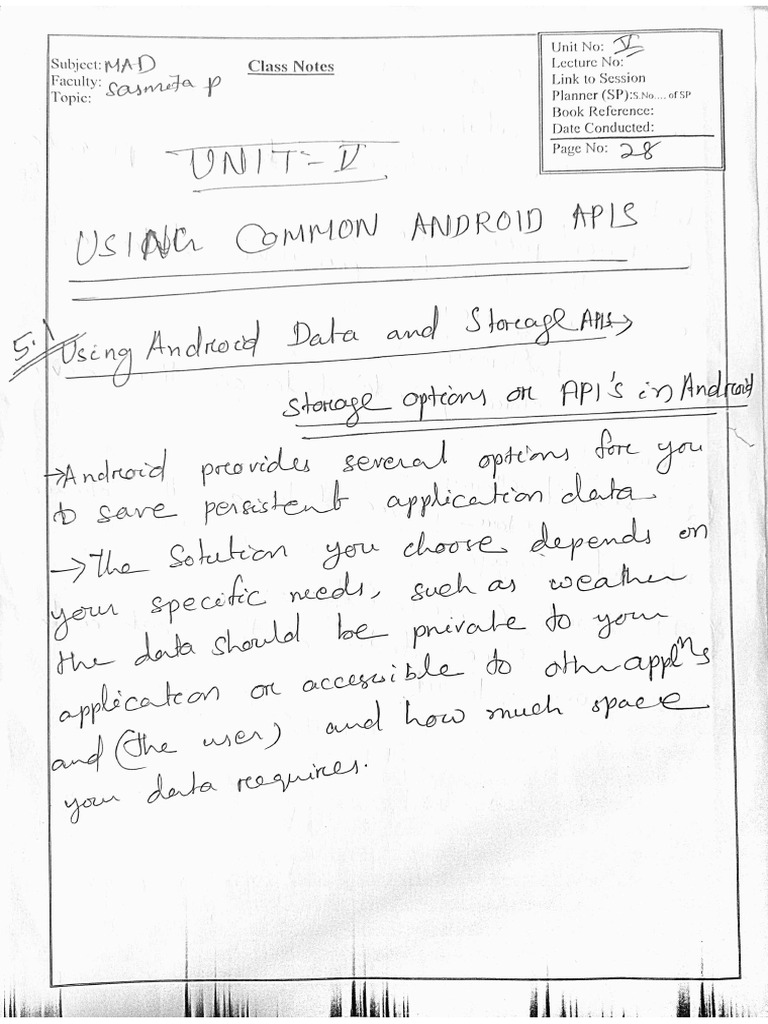 Subject: MAD
Class Notes
Faculty: Sasmeta P
Topic:
Unit No: V
Lecture No:
Link to Session
Planner (SP):S.No.... of SP
Book Reference:
Date Conducted:
Page No: 28
UNIT-V
USING COMMON ANDROID APIS
5.1 Using Android Data and Storage APIs→
Storage options or API's in Android
→Android provides several options for you
to save persistent application data.
→The Solution you choose depends on
your specific needs, such as weather
the data should be private to your
application or accessible to other appl^ns
and (the user) and how much space
your data requires.